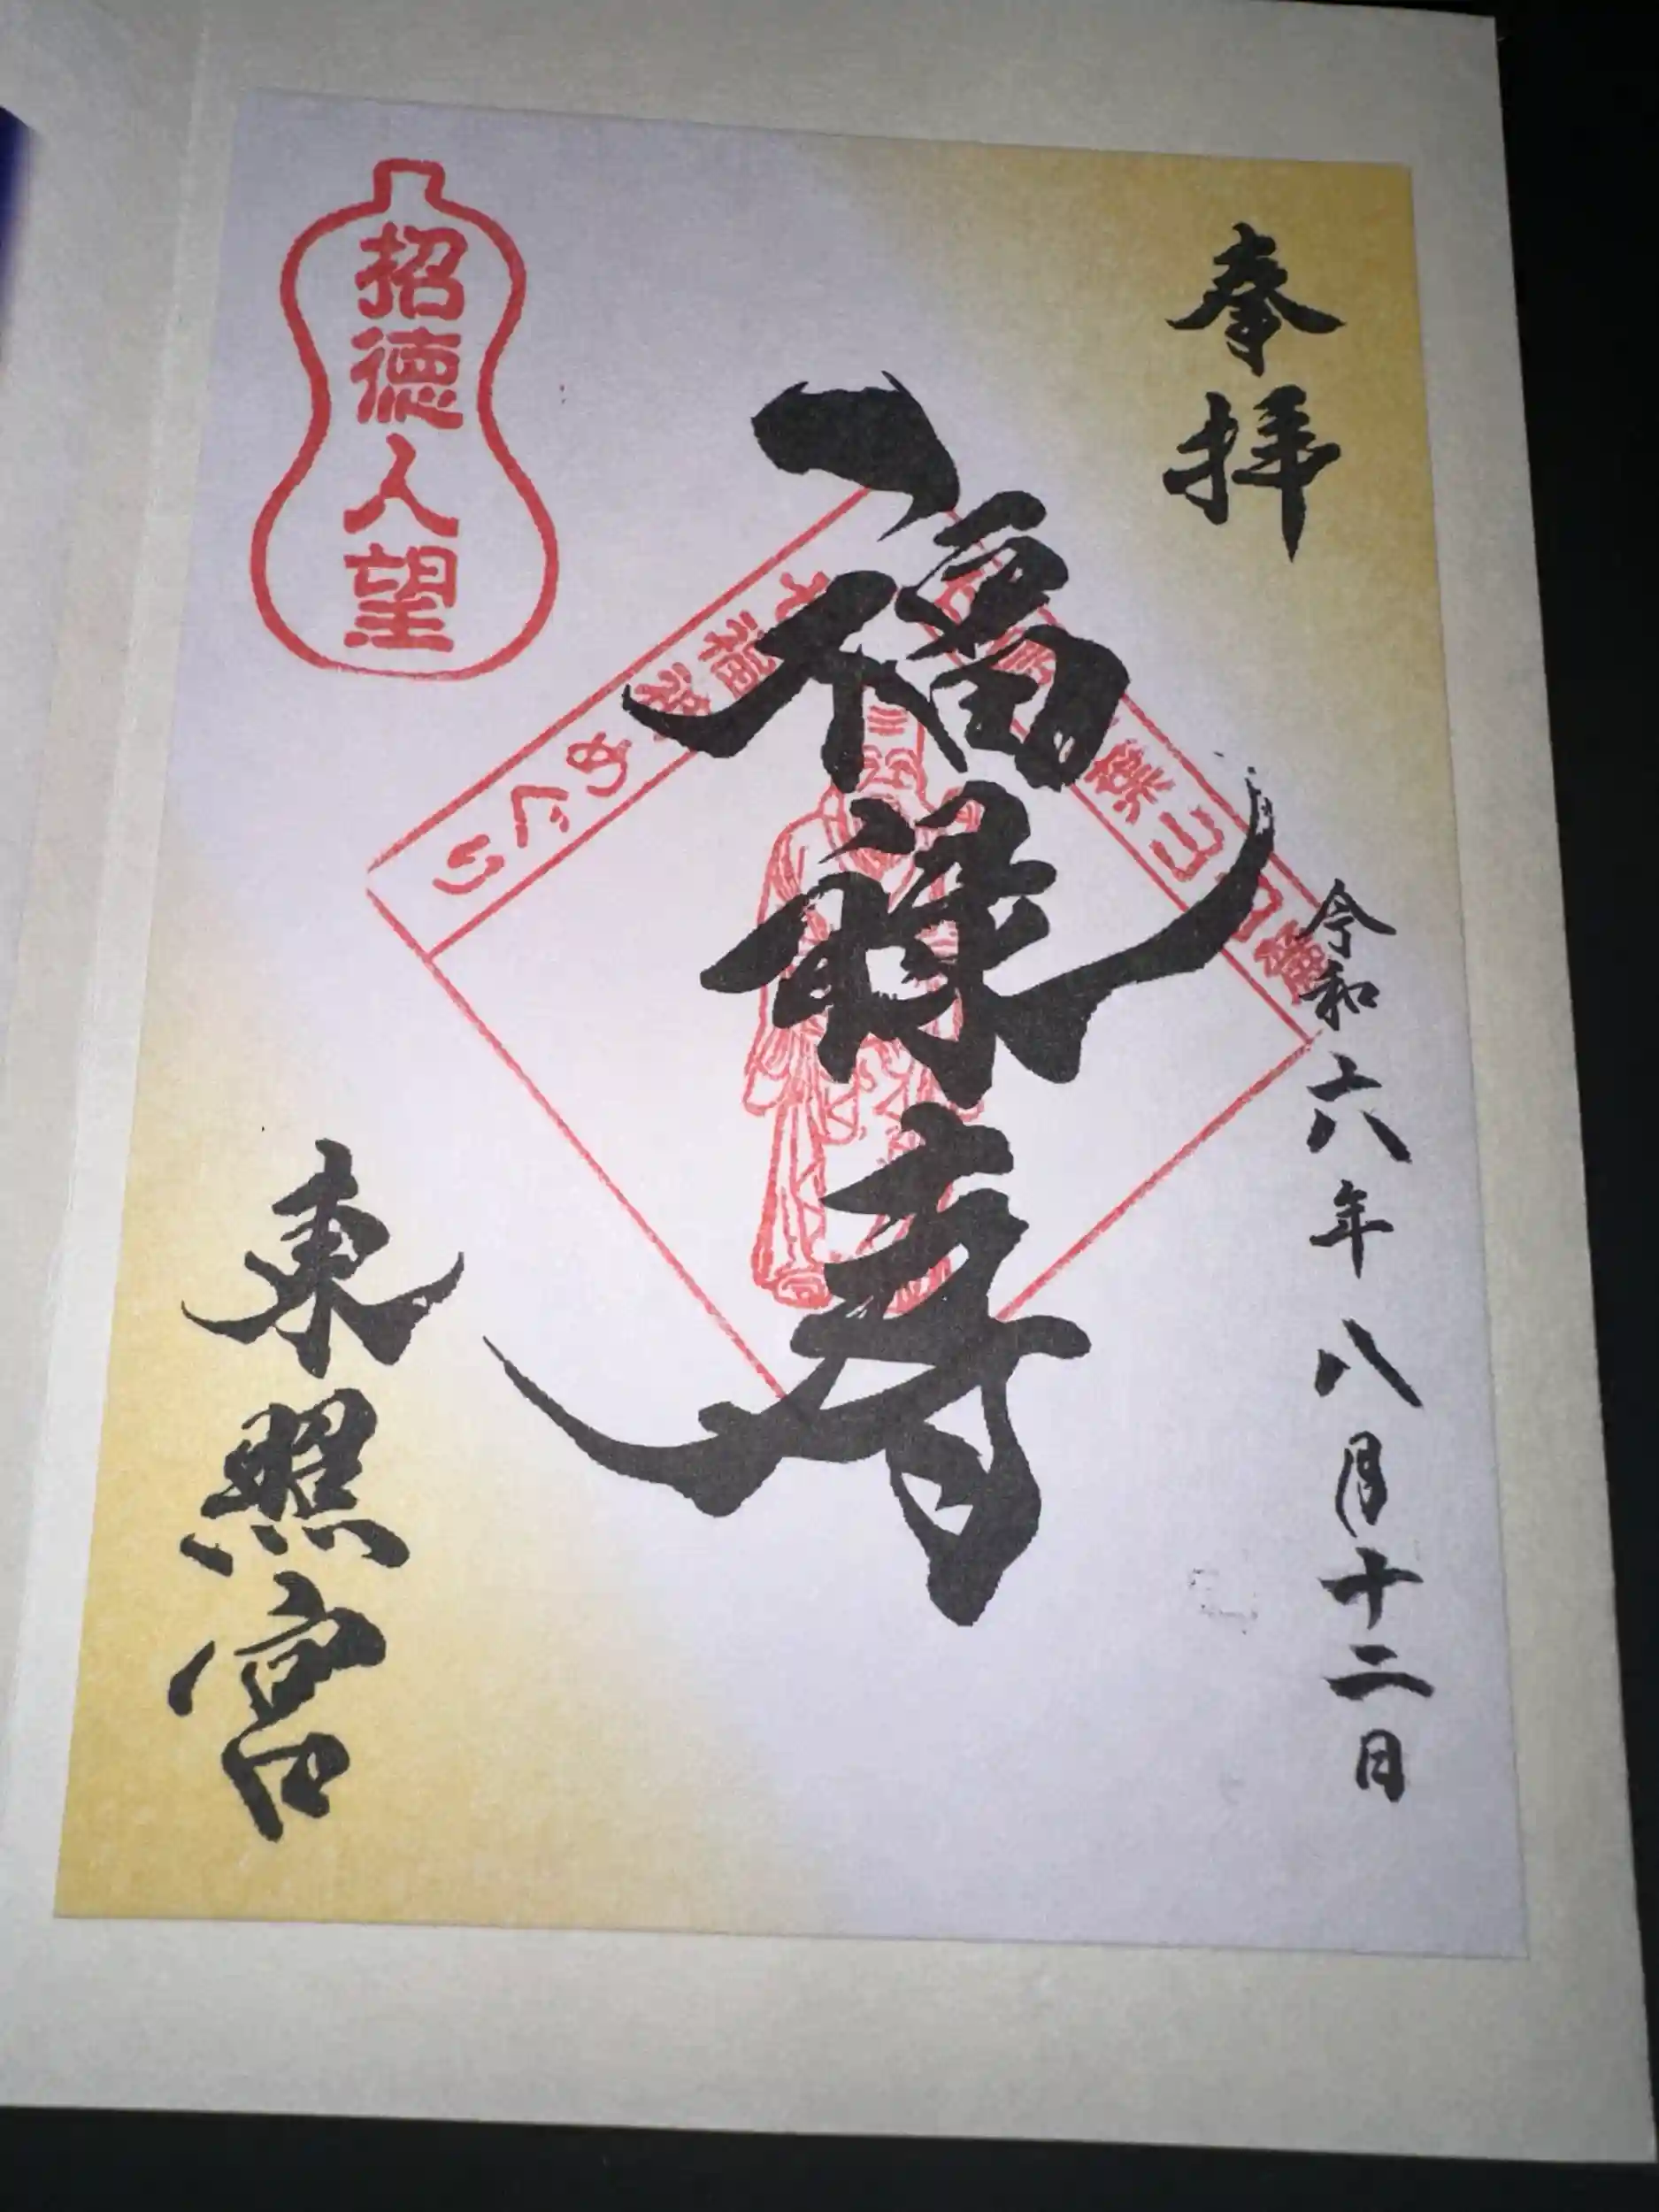 奉拝
令和六年八月十二日
福禄寿
七福神めぐり
東照宮
招徳人望